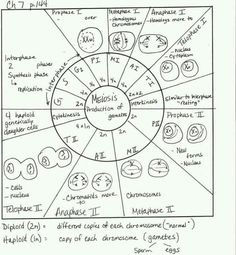 Ch 7 p.144
Prophase I
over
Metaphase I
- Homologous
Chromosomes
Anaphase I
- Homologs move to
Telophase I
- Nucleus
- Cytoplasm
Interphase
2 phases
Synthesis phase
replication
Interphase
S
G2
PI
MI
AI
TI
4n
4n
4n
4n
Meiosis
Production of
gametes
Interkinesis
Similar to Interphase
"resting"
4 haploid
genetically
daughter cells
Cytokinesis
T II
A II
M II
P II
Prophase II
- New
forms
- Nucleus
- Cells
- nucleus
Telophase II
- Chromatids move
to
Anaphase II
Chromosomes
Metaphase II
Diploid (2n) = different copies of each chromosome ("normal")
Haploid (1n) = copy of each chromosome (gametes)
sperm eggs